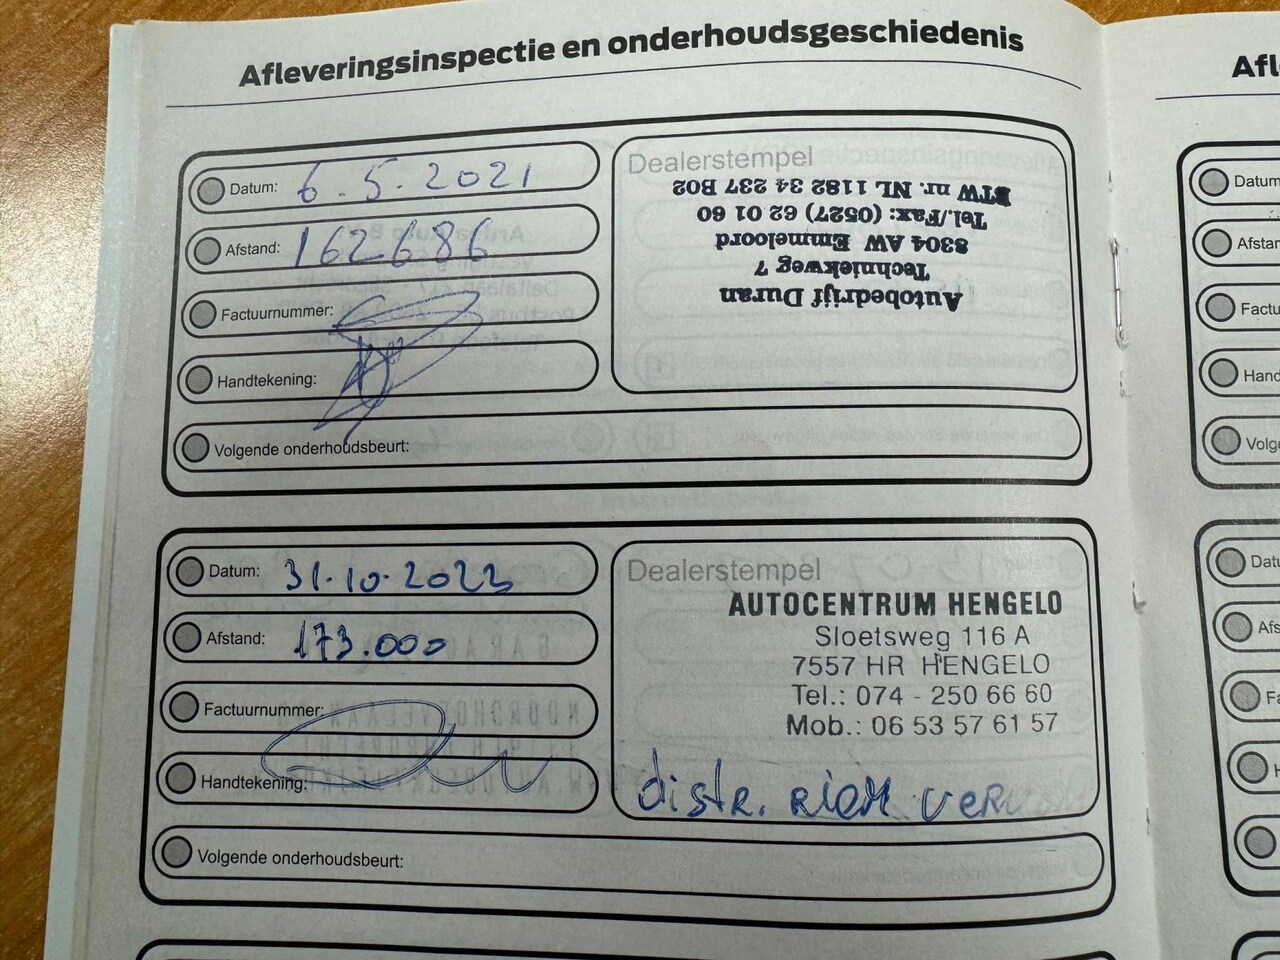 Afleveringsinspectie en onderhoudsgeschiedenis
Datum: 6-5-2021
Afstand: 162686
Factuurnummer:
Handtekening:
Volgende onderhoudsbeurt:
Dealerstempel
Autobedrijf Duran
Techniekweg 7
8304 AW Emmeloord
Tel./Fax: (0527) 62 01 60
BTW nr. NL 1182 34 237 B02
Datum: 31-10-2023
Afstand: 173.000
Factuurnummer:
Handtekening:
Volgende onderhoudsbeurt:
Dealerstempel
AUTOCENTRUM HENGELO
Sloetsweg 116 A
7557 HR HENGELO
Tel.: 074 - 250 66 60
Mob.: 06 53 57 61 57
distr. RIEM VER
Afl
Datum
Afstan
Factu
Hand
Volg
Datu
Afs
Fa
H